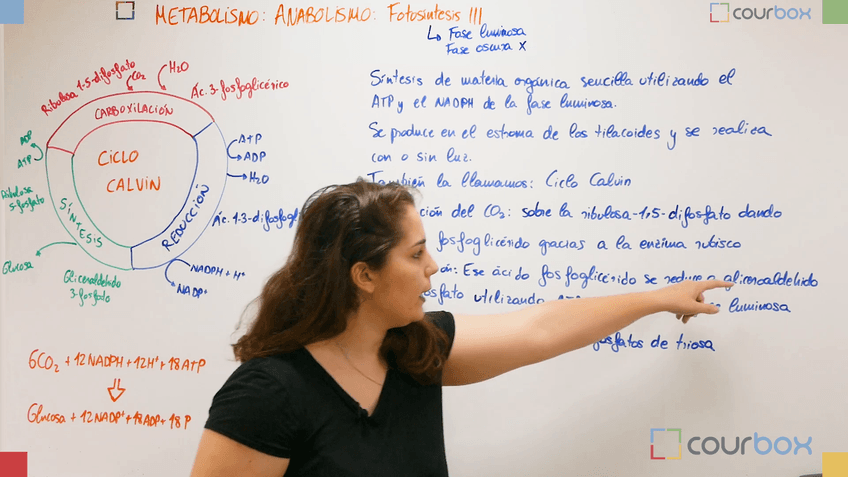 METABOLISMO: ANABOLISMO: Fotosíntesis III
courbox
↳ Fase luminosa
Fase oscura x
Ribulosa 1-5-difosfato
CO₂
H₂O
Ác. 3-fosfoglicérico
CARBOXILACIÓN
CICLO
CALVIN
ADP
ATP
Ribulosa
5-fosfato
SÍNTESIS
Glucosa
Gliceraldehido
3-fosfato
REDUCCIÓN
ATP
ADP
H₂O
Ác. 1-3-difosfogl
NADPH + H⁺
NADP⁺
6CO₂ + 12NADPH + 12H⁺ + 18ATP
Glucosa + 12NADP⁺ + 18ADP + 18P
Síntesis de materia orgánica sencilla utilizando el
ATP y el NADPH de la fase luminosa.
Se produce en el estroma de los tilacoides y se realiza
con o sin luz.
También la llamamos: Ciclo Calvin
ción del CO₂: sobre la ribulosa-1,5-difosfato dando
fosfoglicérido gracias a la enzima rubisco
ón: Ese ácido fosfoglicérido se reduce a gliceraldehido
sfato utilizando luminosa
fosfatos de triosa
courbox